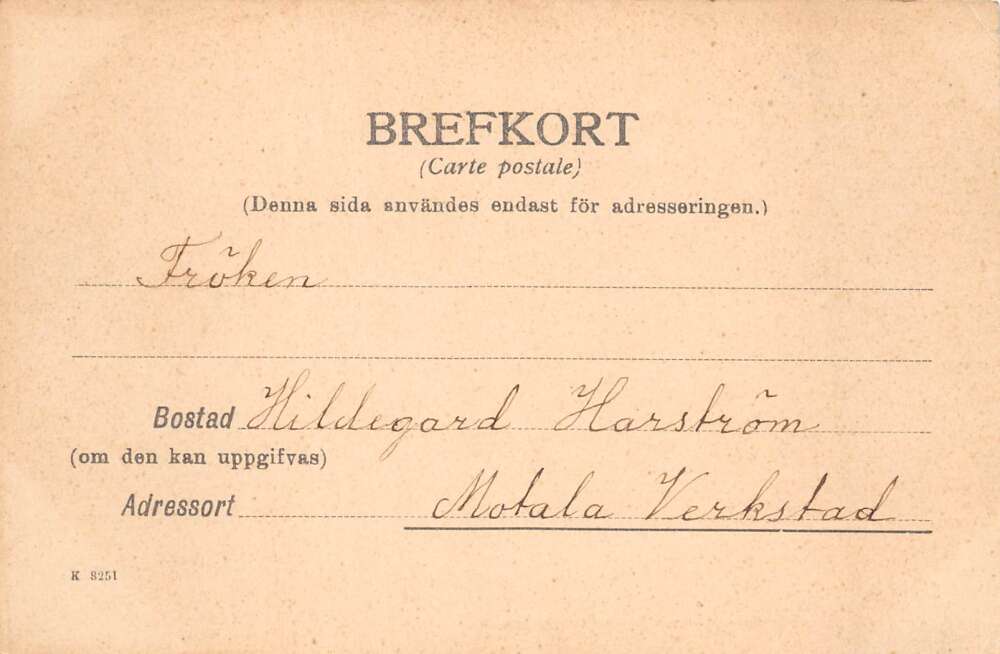 BREFKORT
(Carte postale)
(Denna sida användes endast för adresseringen.)
Fröken
Bostad Hildegard Harström
(om den kan uppgifvas)
Adressort Motala Verkstad
K 8251